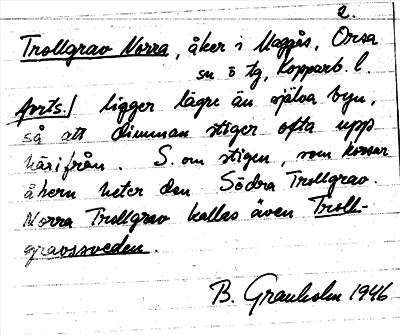 2.
Trollgrav Norra, åker i Maggås, Orsa
sn o tg, Kopparb. l.
forts./ ligger lägre än själva byn,
så att dimman stiger ofta upp
härifrån. S. om stigen, som korsar
åkern heter den Södra Trollgrav.
Norra Trollgrav kallas även Troll-
gravssveden.
B. Granholm 1946